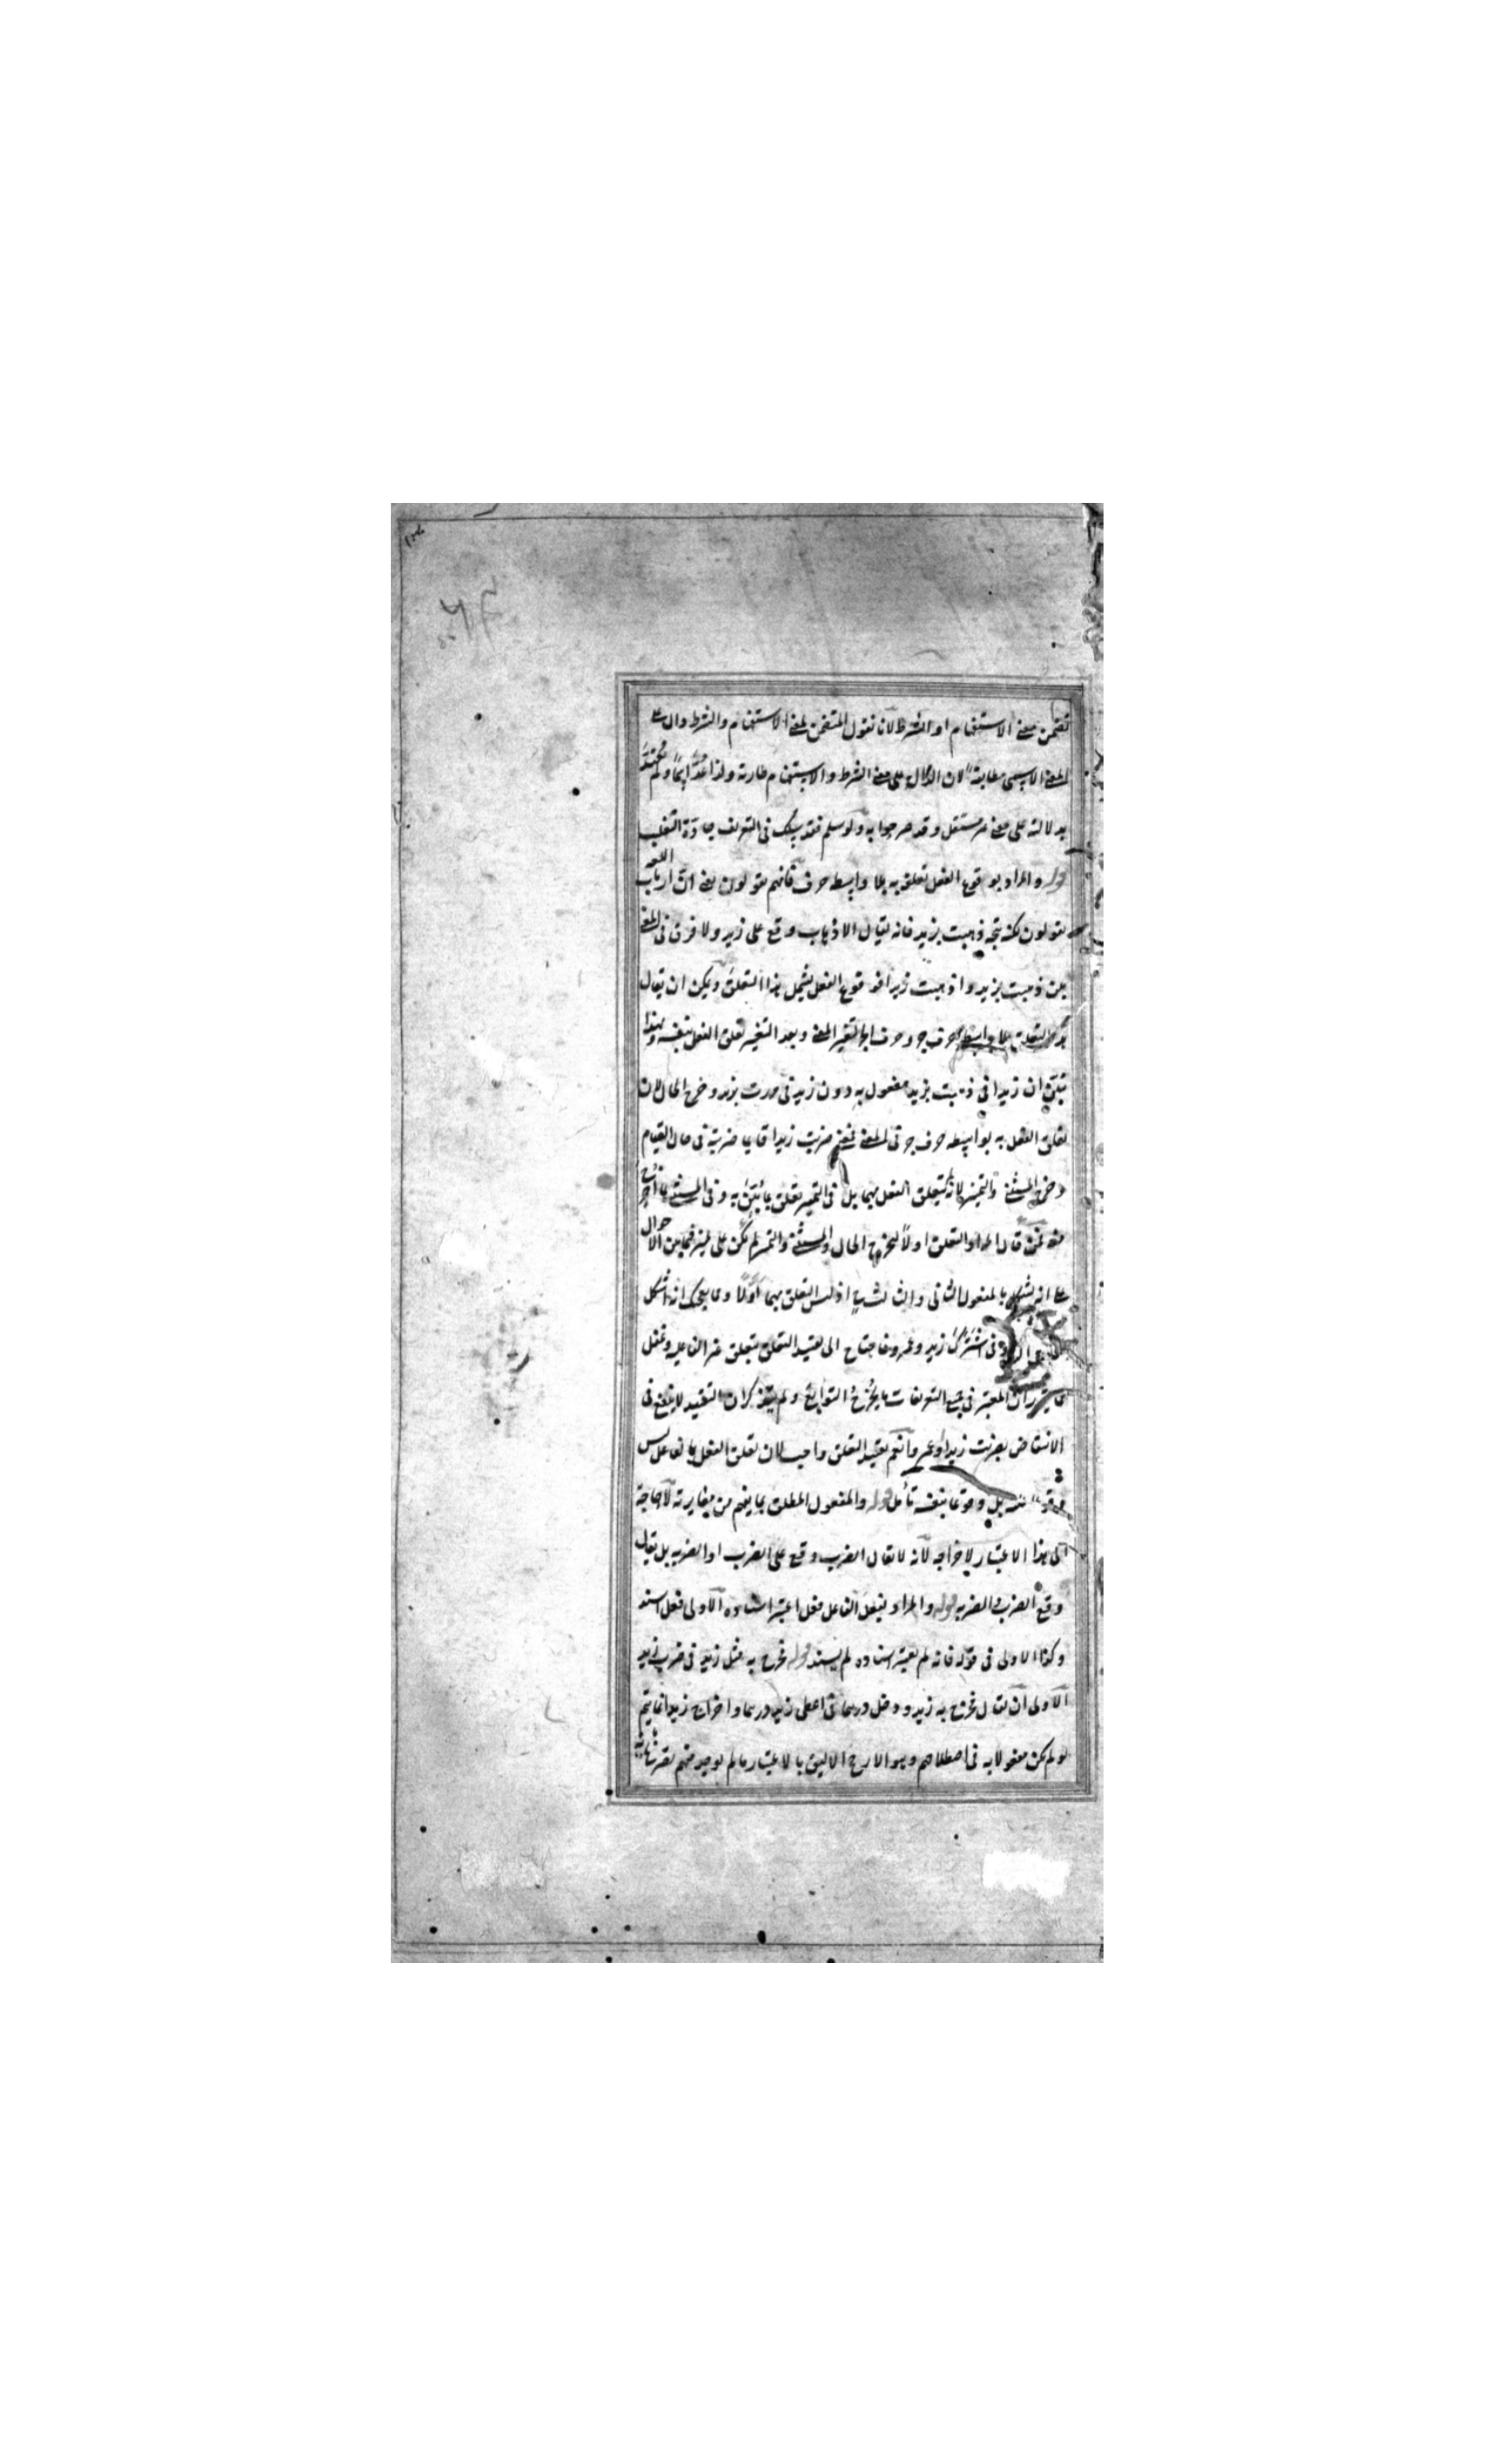 تضمن معنى الاستفهام او الشرط لانا نقول المتضمن لمعنى الاستفهام والشرط دال على
المعنى الاسمى مطابقة لان الدلالة على معنى الشرط والاستفهام طارئة ولذا عد اسما ولم يعتد
بدلالته على معنى غير مستقل وقد مر جوابه ولو سلم فقد يسلك فى التعريف جادة التغليب
قوله والمراد بوقوع الفعل تعلقه به بلا واسطة حرف فانهم يقولون يعنى ان ارباب اللغة
يقولون لكنه يتجه ذهبت بزيد فانه يقال الاذهاب وقع على زيد ولا فرق فى المعنى
بين ذهبت بزيد واذهبت زيدا فوقوع الفعل يشمل هذا التعلق ويمكن ان يقال
التعلق بلا واسطة حرف جر وحرف الجر لتغير المعنى وبعد التغيير تعلق الفعل بنفسه ولهذا
تبين ان زيدا فى ذهبت بزيد مفعول به دون زيد فى مررت بزيد وخرج الحال لان
تعلق الفعل به بواسطة حرف جر فى المعنى فمعنى ضربت زيدا قائما ضربته فى حال القيام
وخرج المستثنى والتميز لانه لم يتعلق الفعل بهما بل فى التميز تعلق بما يبين به وفى المستثنى بما اخرج
منه فمن قال المراد التعلق اولا ليخرج الحال والمستثنى والتميز لم يكن على تميز فيما بين الاحوال
على انه يشكل بالمفعول الثانى والثالث اذ ليس التعلق بهما اولا ومما يعجبك انه اشكل
فى اشترك زيد وعمرو فاحتاج الى تقييد التعلق بتعلق غير الفاعلية وغفل
ان المعتبر فى جميع التعريفات ما يخرج التوابع ولم يتذكر ان التقييد لا ينفع فى
الانتقاض بضربت زيدا وعمروا نعم تقييد التعلق واجب لان تعلق الفعل بالفاعل ليس
بل وقوعا بنفسه تأمل قوله والمفعول المطلق بما يفهم من مغايرته لا حاجة
الى هذا الاعتبار لاخراجه لانه لا يقال الضرب وقع على الضرب او الضربة بل يقال
وقع الضرب والضربة قوله والمراد بفعل الفاعل فعل اعتبر اسناده الاولى فعل اسند
وكذا الاولى فى قوله فانه لم يعتبر اسناده لم يسند قوله فخرج به مثل زيد فى ضرب زيد
الاولى ان يقال فخرج به زيد ودخل درهما فى اعطى زيد درهما واخراج زيد انما يتم
لو لم يكن مفعولا به فى اصطلاحهم وهو الارجح الاليق بالاعتبار ما لم يوجد منهم تصريح